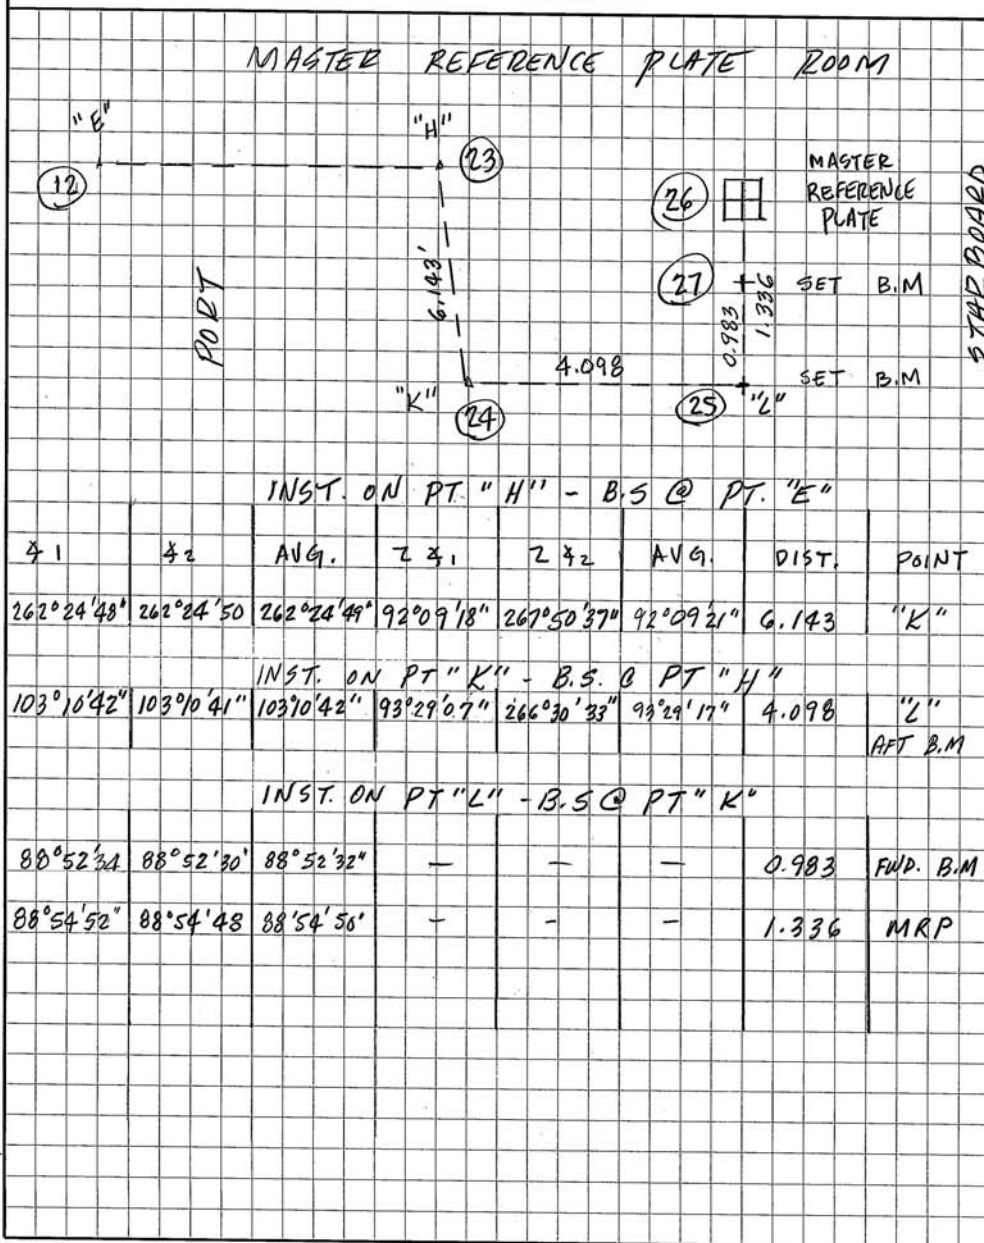 MASTER REFERENCE PLATE ROOM
"E"
"H"
12
23
26
MASTER
REFERENCE
PLATE
STARBOARD
PORT
6.143'
27
SET B.M
0.983
1.336
4.098
SET B.M
"K"
24
25
"L"
INST. ON PT. "H" - B.S @ PT. "E"
∡1 ∡2 AVG. Z∡1 Z∡2 AVG. DIST. POINT
262°24'48" 262°24'50 262°24'49" 92°09'18" 267°50'37" 92°09'21" 6.143 "K"
INST. ON PT "K" - B.S. @ PT "H"
103°10'42" 103°10'41" 103°10'42" 93°29'07" 266°30'33" 93°29'17" 4.098 "L"
AFT B.M
INST. ON PT "L" - B.S @ PT "K"
88°52'34 88°52'30" 88°52'32" — — — 0.983 FWD. B.M
88°54'52" 88°54'48 88°54'50' - - — 1.336 MRP